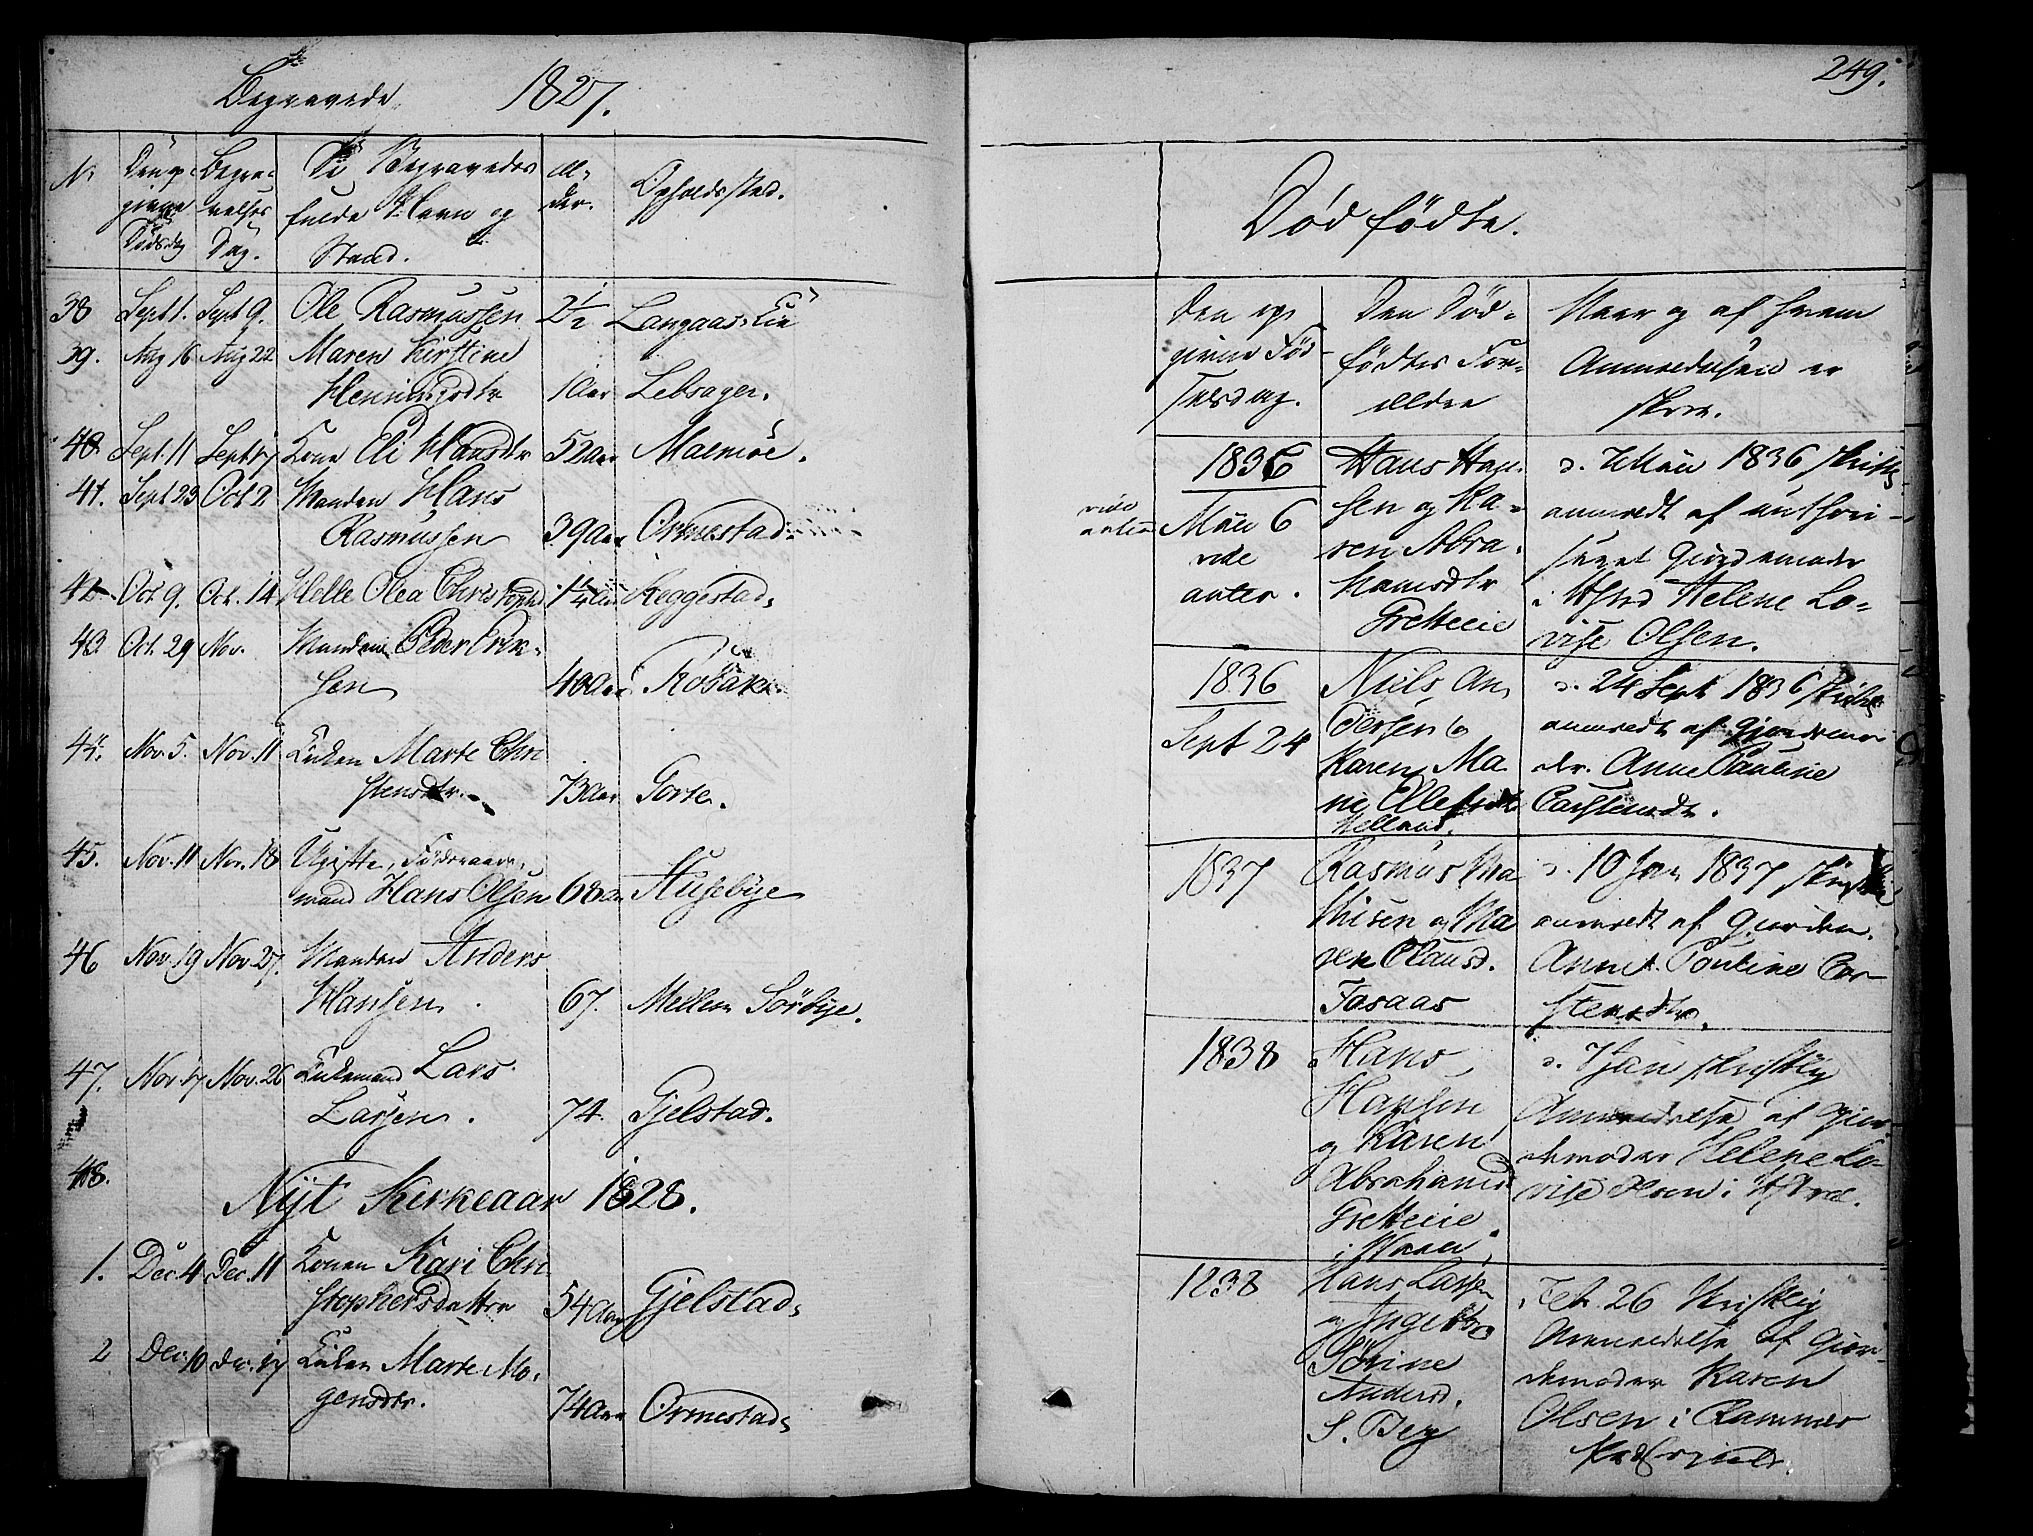 Begravede 1827.
No
Den op-
givne
Dødsdag
Begra-
velses
Dag.
De Begravedes
fulde Navn og
Stand.
Al-
der.
Opholdssted.
38 Sept 1. Sept 9. Ole Rasmussen 2 1/2 Langaas Eie
39. Aug 16 Aug 22 Maren Kirstine
Henningsdtr 1 Aar Lebsager.
40. Sept. 11 Sept 17 Kone Eli Hansdtr 52 Aar Malmöe.
41. Sept 23 Oct 2 Manden Hans
Rasmussen 39 Aar Ormestad.
42 Oct. 9. Oct. 14 Helle Olea Christophd 1 1/4 Aar Heggestad.
43 Oct. 29 Nov. Manden Peder Erik-
sen 40 Aar
44. Nov. 5. Nov. 11 Enken Marte Chri
stensdtr. 73 Aar Torse.
45. Nov. 11 Nov. 18 Ugifte, Föderaads-
mand Hans Olsen 68 Aar Husebye
46 Nov. 19 Nov. 27. Manden Anders
Hansen. 67. Mellem Sörbye.
47. Nov 17 Nov. 26 Enkemand Lars
Larsen. 74. Gjelstad.
48.
Nyt Kirkeaar 1828.
1. Dec 4 Dec. 11 Konen Kari Chri
stophersdatter 54 Aar Gjelstad.
2 Dec. 10 Dec. 17 Enken Marte Mo-
gensdtr. 74 Aar Ormestad.
249.
Dødfødte.
Den op-
givne Fød-
selsdag.
Den Død-
fødtes For-
ældre
Naar og af hvem
Anmeldelsen er
skeet.
1836
Mai 6
vide
anten.
vide
anten
Hans Han-
sen og Ka-
ren Abra-
hamsdtr
Gretteeie
d. 7 Mai 1836 skriftl
anmeldt af authori-
seret Gjordemoder
i Helene Lo-
vise Olsen.
1836
Sept 24
Niels An-
dersen og
Karen Ma-
rie Ellefsdtr
Helland.
d. 24 Sept 1836 skriftl
anmeldt af Gjordemo-
der. Anne Pauline
Carstensdt.
1837
Rasmus Ma
thisen og Ma
ren Clausd.
Fosaas
d. 10 Jan 1837 skriftl
anmeldt af Gjordem.
Anne Pauline Car-
stensdtr.
1838
Hans
Hansen
og Karen
Abrahamsd
Gretteeie
d. 7 Jan skriftlig
Anmeldelse af Gjor-
demoder Helene Lo-
vise Olsen i
1838
Hans Larsen
og Ingebor
Sörine
Andersd.
S. Berg
Feb. 26 skriftlig
Anmeldelse af Gjor-
demoder Karen
Olsen i Rammes